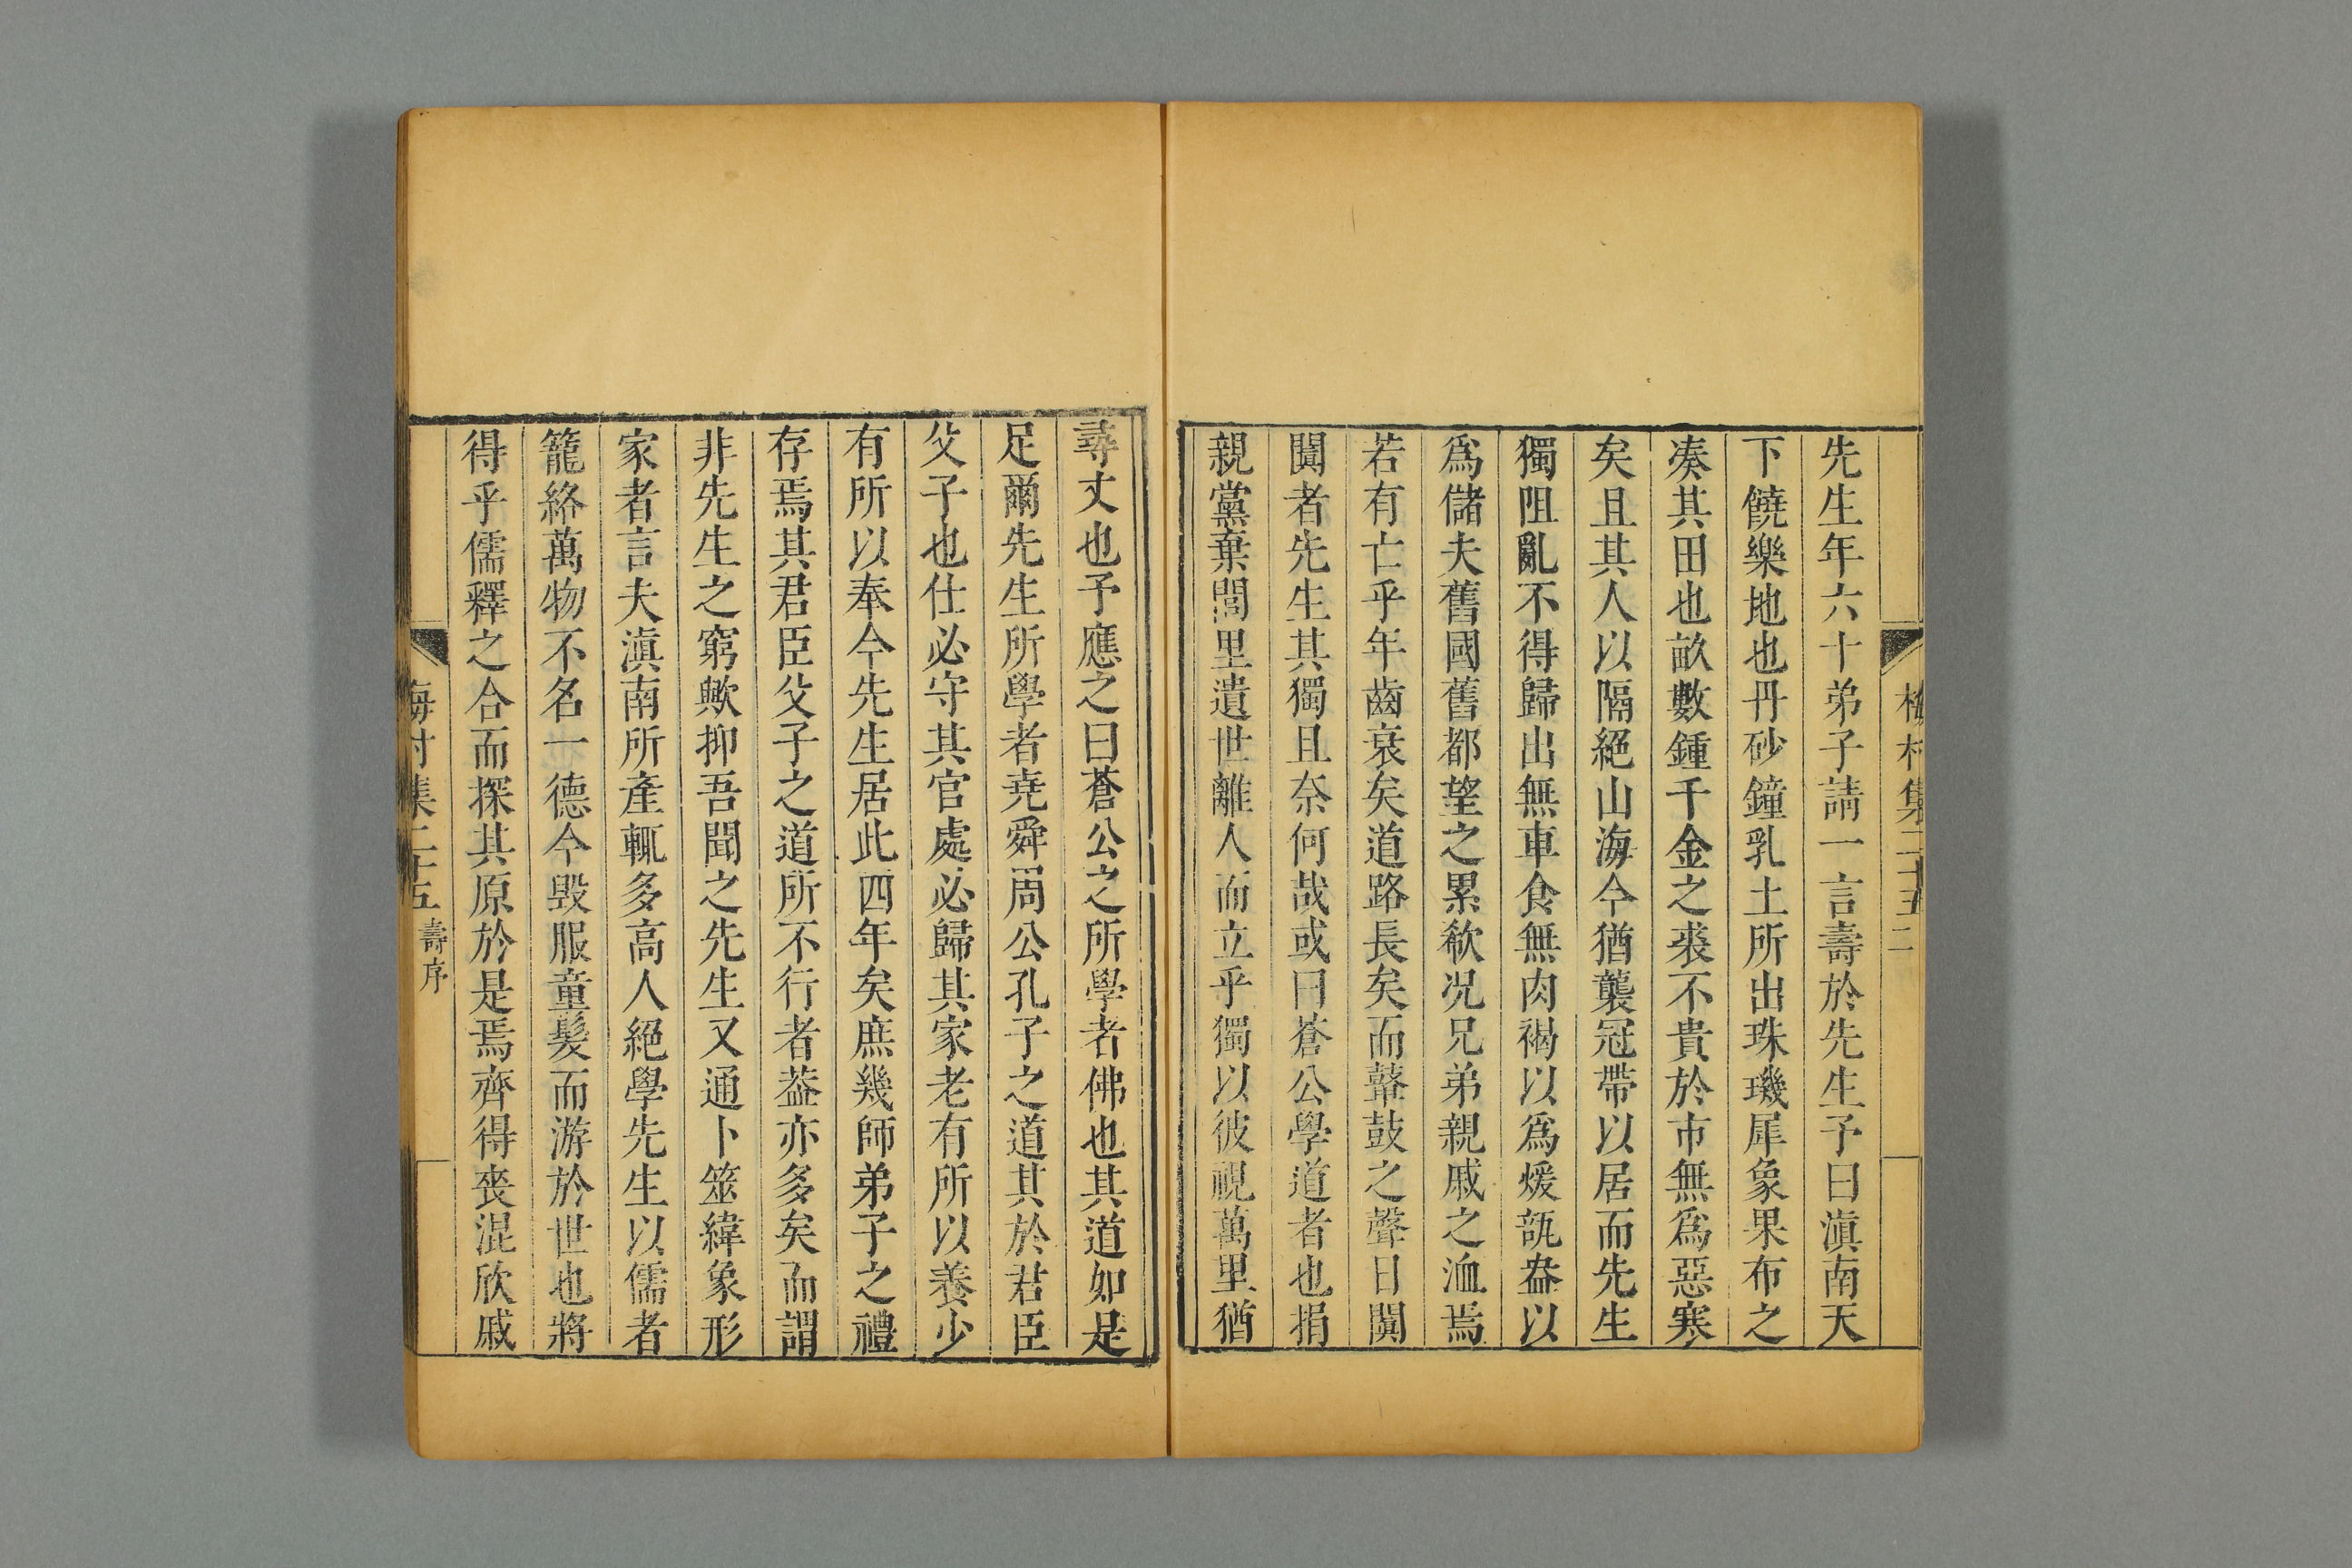 梅村集二十五 二
先生年六十弟子請一言壽於先生予曰滇南天
下饒樂地也丹砂鐘乳土所出珠璣犀象果布之
凑其田也畝數鍾千金之裘不貴於市無爲惡寒
矣且其人以隔絕山海今猶襲冠帶以居而先生
獨阻亂不得歸出無車食無肉褐以爲煖瓻盎以
爲儲夫舊國舊都望之累欷况兄弟親戚之洫焉
若有亡乎年齒衰矣道路長矣而鼙鼓之聲日闐
闐者先生其獨且奈何哉或曰蒼公學道者也捐
親黨棄閭里遺世離人而立乎獨以彼視萬里猶
尋丈也予應之曰蒼公之所學者佛也其道如是
足爾先生所學者堯舜周公孔子之道其於君臣
父子也仕必守其官處必歸其家老有所以養少
有所以奉今先生居此四年矣庶幾師弟子之禮
存焉其君臣父子之道所不行者葢亦多矣而謂
非先生之窮歟抑吾聞之先生又通卜筮緯象形
家者言夫滇南所產輒多高人絕學先生以儒者
籠絡萬物不名一德今毀服童髮而游於世也將
得乎儒釋之合而探其原於是焉齊得喪混欣戚
梅村集二十五 壽序